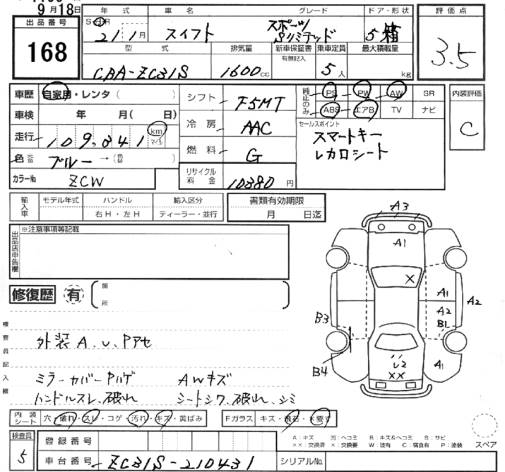 9月18日
出品番号
168
年式
車名
グレード
ドア・形状
評価点
21 1月 スイフト
スポーツ
Sリミテッド
5 箱
3.5
型式
排気量
新車保証書
有無記入
乗車定員
最大積載量
CBA-ZC31S
1600cc
5人
kg
車歴 自家用・レンタ( )
シフト
F5MT
純正のみ
PS
PW
AW
SR
内装評価
車検 年 月( 日)
ABS
エアB
TV
ナビ
C
走行 109,841 km マイル
冷房
AAC
セールスポイント
スマートキー
レカロシート
色 ブルー → (色替 )
燃料
G
カラーNo ZCW
リサイクル料金
10380円
輸入車
モデル年式
ハンドル
右H・左H
輸入区分
ディーラー・並行
書類有効期限
月 日迄
出品店申告欄
※注意事項等記載
修復歴 有
箇所
A3
A1
X
A1
A2
A2
B1
B3
B4
A1
U2
XX
検査員記入欄
外装 A、U、Pアセ
ミラーカバーPハゲ AWキズ
ハンドルスレ、破れ シートシワ、破れ、シミ
内装シート
穴・破れ・スレ・コゲ・汚れ・キズ・黄ばみ
Fガラス
キズ
A:キズ U:ヘコミ B:キズ&ヘコミ S:サビ
スペア
検査員
5
登録番号
車台番号
ZC31S-210431
シリアルNo.